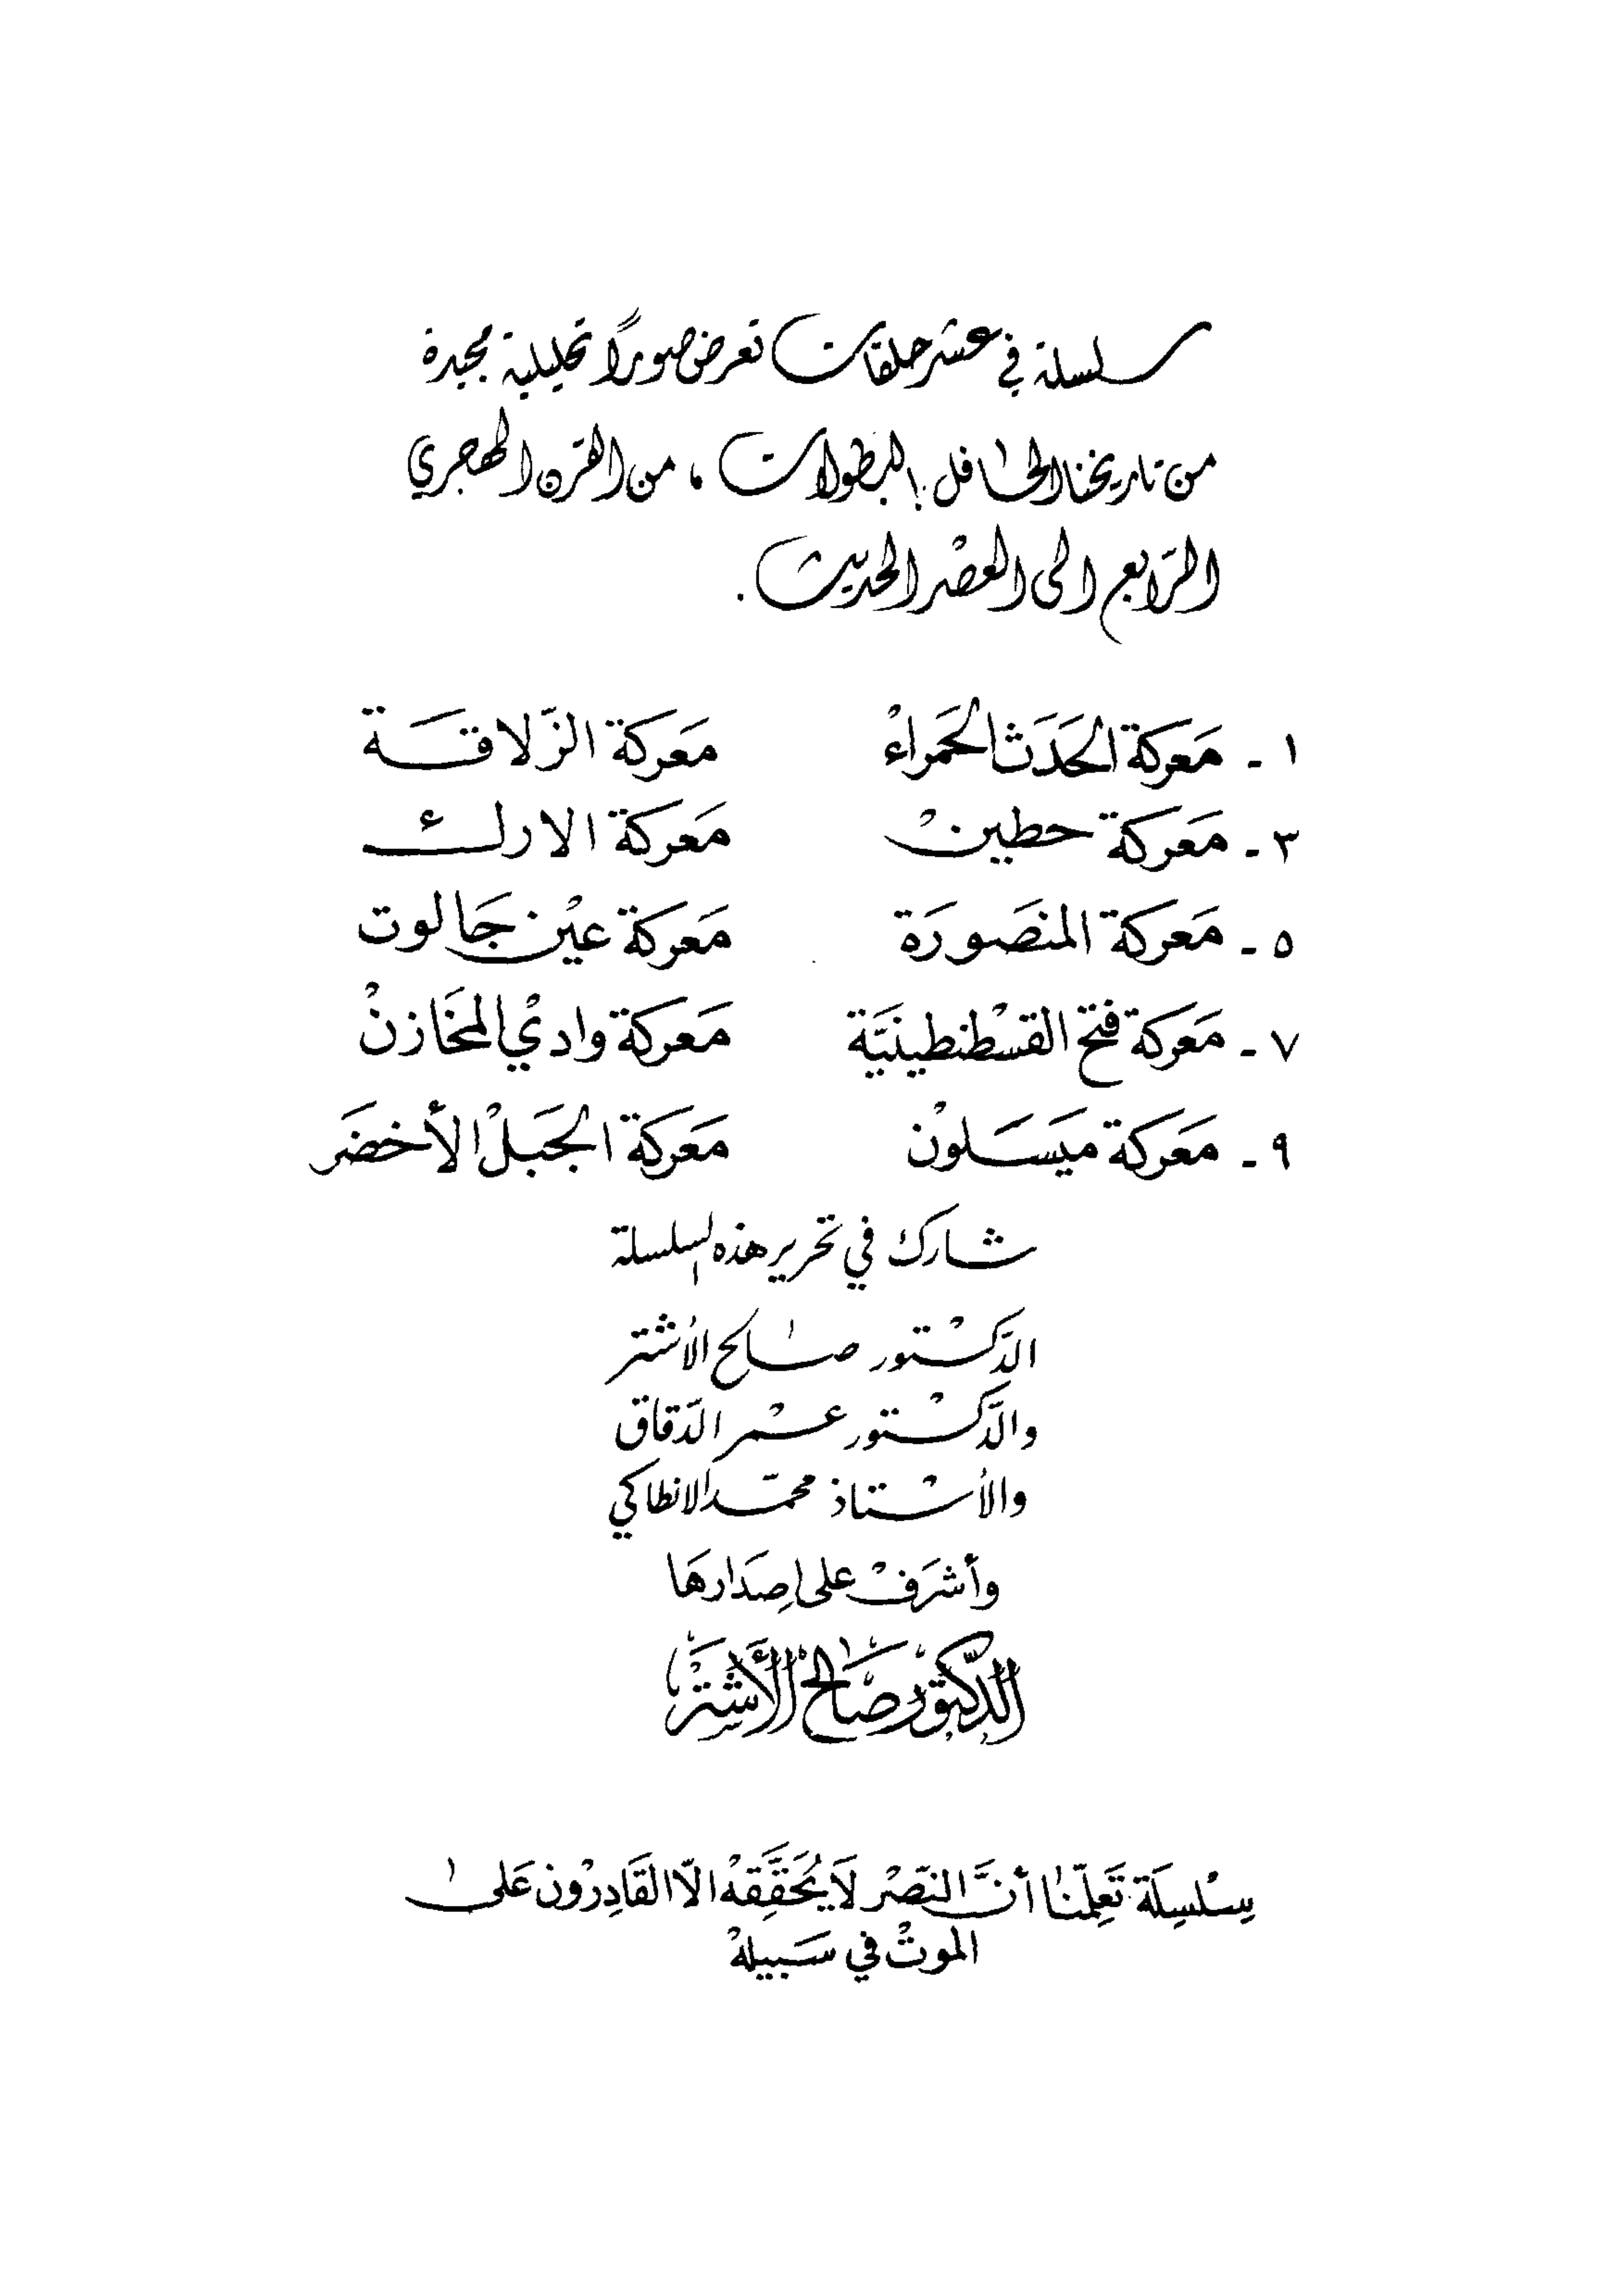 سلسلة في عشر حلقات تعرض صوراً تحليلية مجيدة
من تاريخنا الحافل بالبطولات ، من القرن الهجري
الرّابع الى العصْر الحديث .
١ - مَعركة الحَدَث الحَمراءْ معَركة الزّلاقَة
٣ - مَعَركة حطينْ مَعركة الارك
٥ - مَعَركة المنصَورَة مَعَركة عيْن جَالوت
٧ - مَعَركة فتح القسْطنطينيَّة مَعَركة واديْ المخَازنْ
٩ - مَعَركة ميَسَلوْن مَعَركة الجَبلْ الأخضَر
شارك في تحرير هذه السلسلة
الدّكْتور صالح الأشتر
والدّكْتور عمْر الدّقاق
والأسْتاذ محمّد الانطاكي
وأشرَفْ على إصدَارهَا
الدّكتوْر صَالح الأَشْتَرْ
سِلْسِلَة تَعِلّمنَا أنَّ النّصْر لَا يُحَقِّقهْ الّا القَادِرْون عَلى
الموتْ في سَبيلهْ